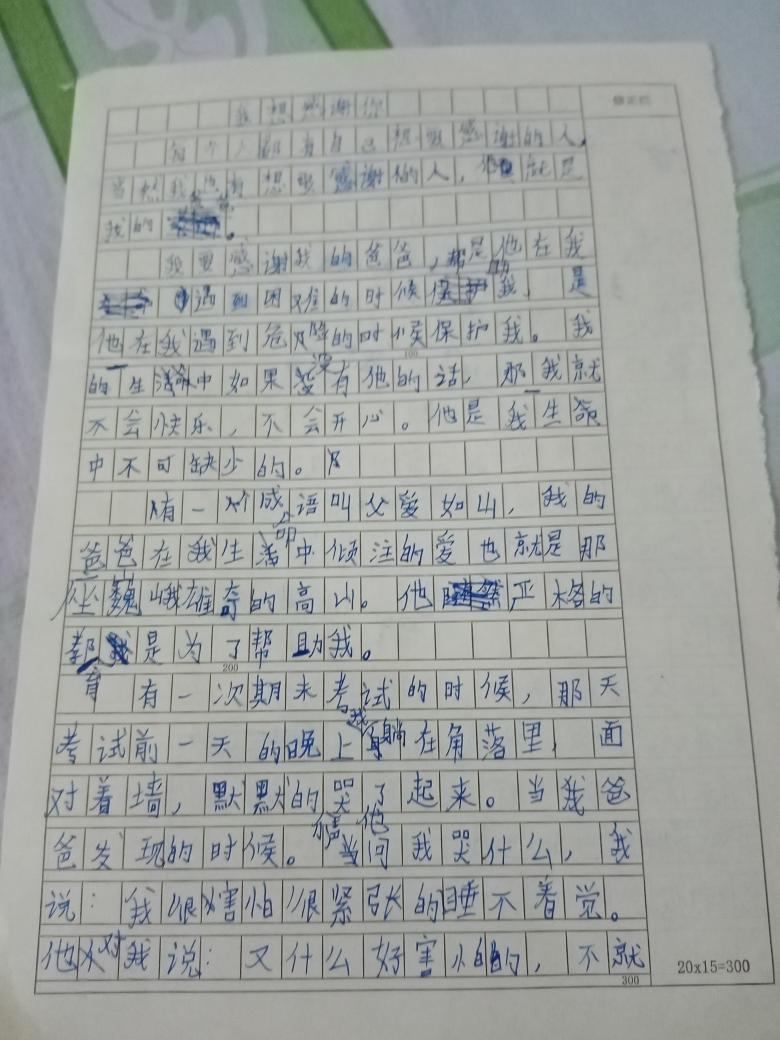 我想感谢你
修正栏
每个人都有自己想要感谢的人,
当然我也有想要感谢的人,就是
我的爸爸。
我要感谢我的爸爸,是他在我
遇到困难的时候帮助我,是
他在我遇到危险的时候保护我。我
100
的生命中如果没有他的话,那我就
不会快乐,不会开心。他是我生命
中不可缺少的。
有一个成语叫父爱如山,我的
爸爸在我生命中倾注的爱也就是那
座巍峨雄奇的高山。他严格的
教育是为了帮助我。
200
有一次期末考试的时候,那天
考试前一天的晚上我躺在角落里,面
对着墙,默默的哭了起来。当我爸
爸发现的时候。他问我哭什么,我
说:我很害怕很紧张的睡不着觉。
他对我说:又什么好害怕的,不就
300
20x15=300